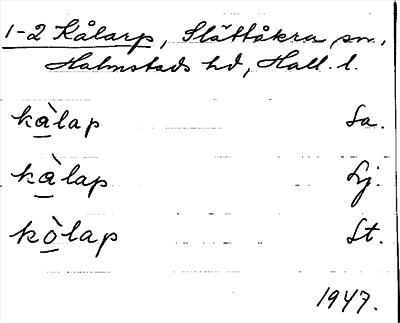 1-2 Kålarp, Slättåkra sn.,
Halmstads hd, Hall. l.
kàlap Sa.
kàlap Lj.
kòlap St.
1947.